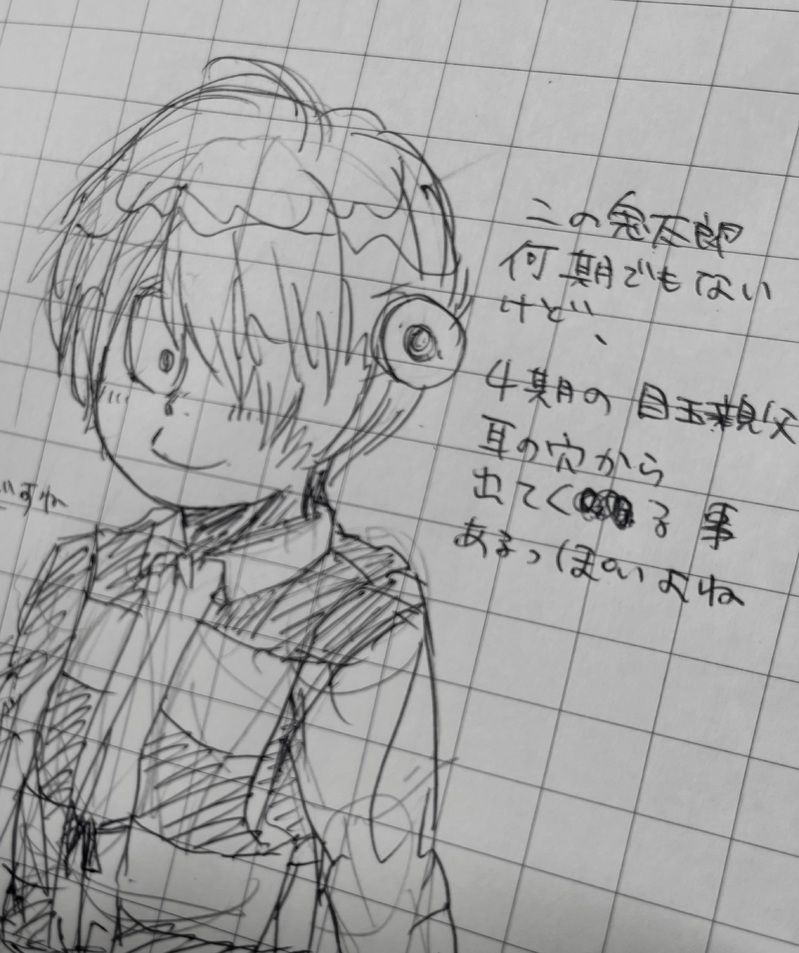 この鬼太郎
何期でもない
けど、
4期の 目玉親父
耳の穴から
出てくる事
あるっぽいよね
いすね